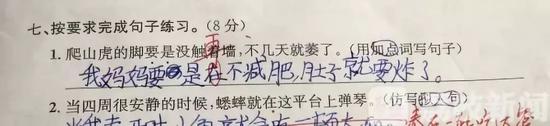 七、按要求完成句子练习。(8分)
1. 爬山虎的脚要是没触着墙,不几天就萎了。(用加点词写句子)
我妈妈要是再不减肥,肚子就要炸了。
2. 当四周很安静的时候,蟋蟀就在这平台上弹琴。(仿写拟人句)